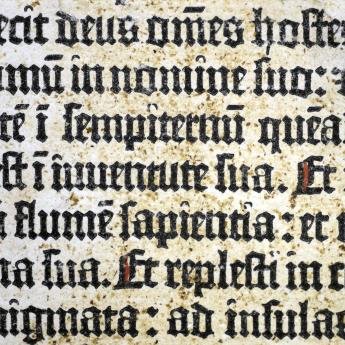 ecit deus om̄es hoste
mū in nomine suo:
tē ī sempiternū quēa
st ī iuuentute sua. Et
flumē sapientia: et
na sua. Et replesti in c
nigmata: ad insulas